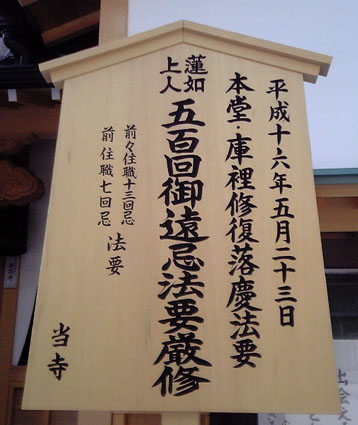 平成十六年五月二十三日
本堂・庫裡修復落慶法要
蓮如上人 五百回御遠忌法要厳修
前々住職十三回忌
前住職七回忌 法要
当寺